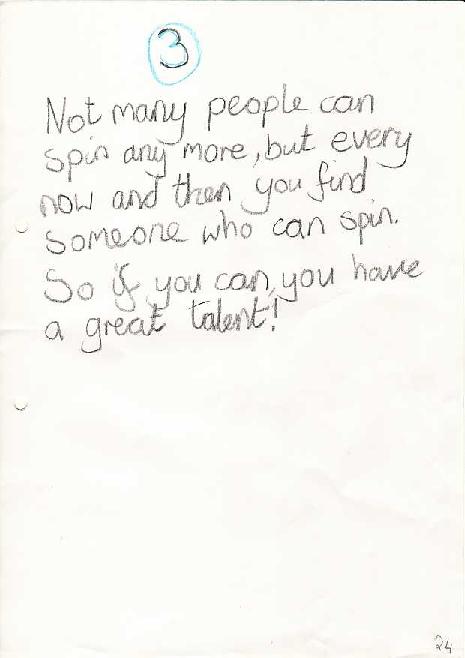 3
Not many people can
spin any more, but every
now and then you find
someone who can spin.
So if you can, you have
a great talent!
24